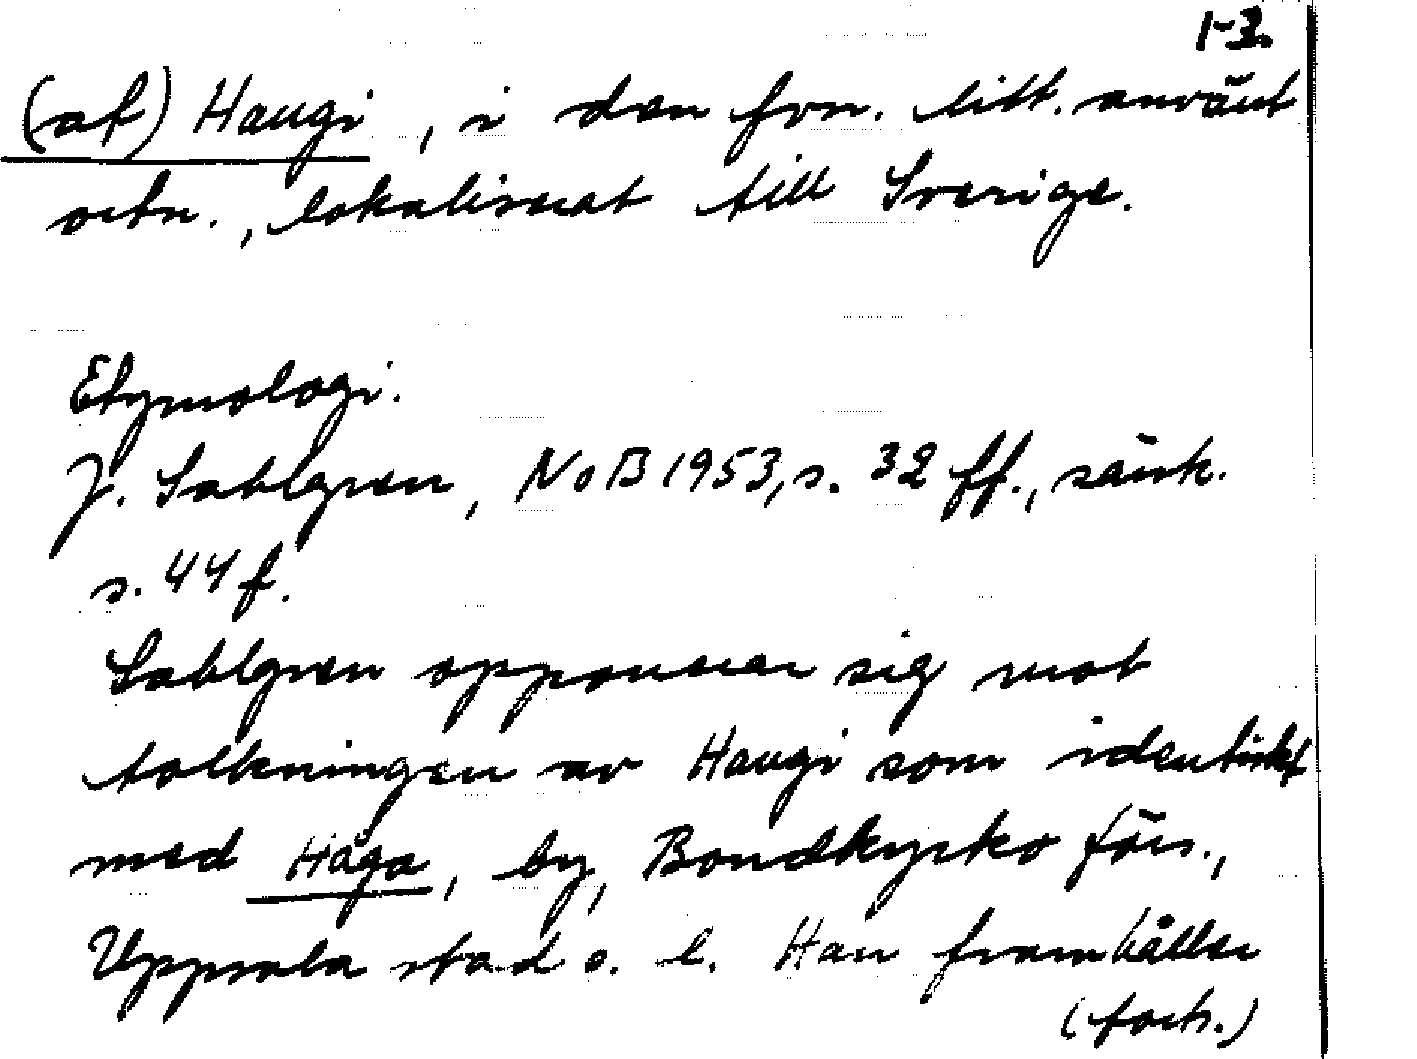 1-3.
(af) Haugi, i den fvn. litt. använt
ortn., lokaliserat till Sverige.
Etymologi.
J. Sahlgren, NoB 1953, s. 32 ff., särsk.
s. 44 f.
Sahlgren opponerar sig mot
tolkningen av Haugi som identiskt
med Håga, by, Bondkyrko förs.,
Uppsala stad o. l. Han framhåller
(forts.)